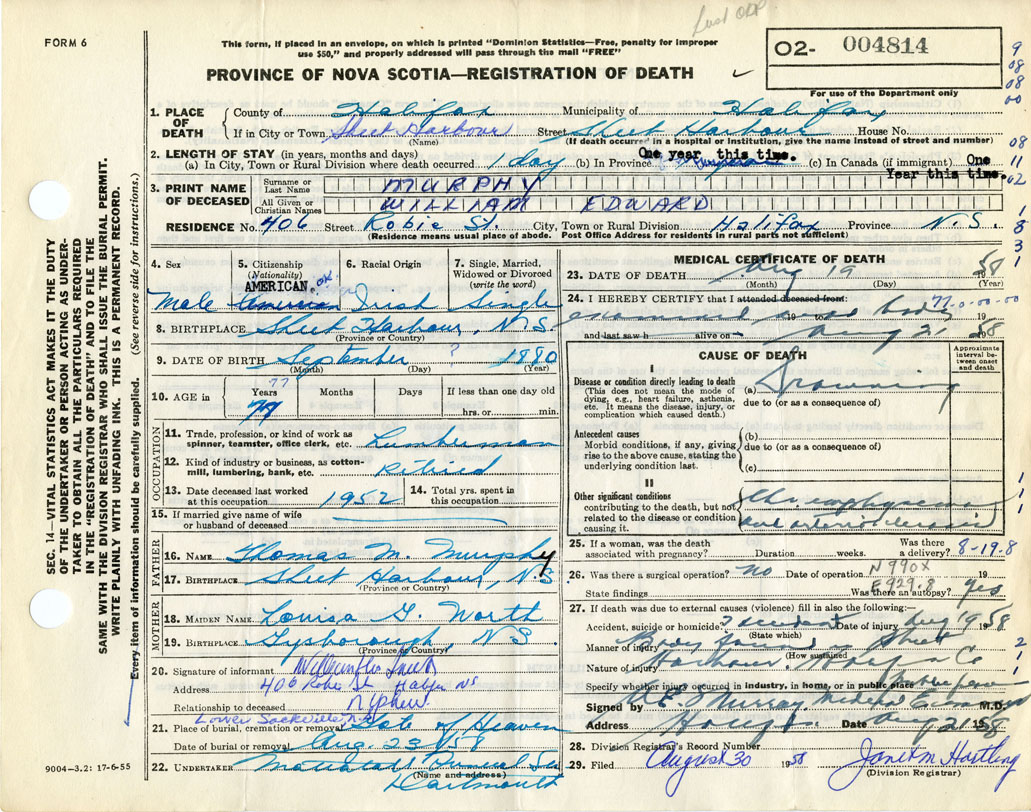 Lust ODP
FORM 6
This form, if placed in an envelope, on which is printed "Dominion Statistics—Free, penalty for improper
use $50," and properly addressed will pass through the mail "FREE"
O2- 004814
For use of the Department only
PROVINCE OF NOVA SCOTIA—REGISTRATION OF DEATH
9
08
08
00
08
11
02
1
8
3
1
SEC. 14—VITAL STATISTICS ACT MAKES IT THE DUTY
OF THE UNDERTAKER OR PERSON ACTING AS UNDER-
TAKER TO OBTAIN ALL THE PARTICULARS REQUIRED
IN THE "REGISTRATION OF DEATH" AND TO FILE THE
SAME WITH THE DIVISION REGISTRAR WHO SHALL ISSUE THE BURIAL PERMIT.
WRITE PLAINLY WITH UNFADING INK. THIS IS A PERMANENT RECORD.
Every item of information should be carefully supplied. (See reverse side for instructions.)
1. PLACE OF DEATH
County of Halifax Municipality of Halifax
If in City or Town Sheet Harbour Street Sheet Harbour House No.
(Name) (If death occurred in a hospital or institution, give the name instead of street and number)
2. LENGTH OF STAY (in years, months and days)
(a) In City, Town or Rural Division where death occurred 1 day (b) In Province One year this time. (c) In Canada (if immigrant) One
Year this time.
3. PRINT NAME OF DECEASED
Surname or Last Name MURPHY
All Given or Christian Names WILLIAM EDWARD
RESIDENCE No. 406 Street Robie St. City, Town or Rural Division Halifax Province N.S.
(Residence means usual place of abode. Post Office Address for residents in rural parts not sufficient)
4. Sex 5. Citizenship (Nationality) 6. Racial Origin 7. Single, Married, Widowed or Divorced (write the word)
AMERICAN. OK
Male American Irish Single
8. BIRTHPLACE Sheet Harbour, N.S
(Province or Country)
9. DATE OF BIRTH September ? 1880
(Month) (Day) (Year)
10. AGE in Years Months Days If less than one day old
77
hrs. or min.
OCCUPATION
11. Trade, profession, or kind of work as
spinner, teamster, office clerk, etc. Lumberman
12. Kind of industry or business, as cotton-
mill, lumbering, bank, etc. Retired
13. Date deceased last worked at this occupation 1952 14. Total yrs. spent in this occupation
15. If married give name of wife
or husband of deceased
FATHER
16. NAME Thomas M. Murphy
17. BIRTHPLACE Sheet Harbour, N.S
(Province or Country)
MOTHER
18. MAIDEN NAME Louisa G. North
19. BIRTHPLACE Gysborough, N.S
(Province or Country)
20. Signature of informant
Address 406 Robie St Halifax NS
Relationship to deceased Nephew.
Lower Sackville N.S
21. Place of burial, cremation or removal Gate of Heaven
Date of burial or removal Aug. 23/58
22. UNDERTAKER Mattatall Funeral
(Name and address) Dartmouth
9004—3.2: 17-6-55
MEDICAL CERTIFICATE OF DEATH
23. DATE OF DEATH Aug 19 1958
(Month) (Day) (Year)
24. I HEREBY CERTIFY that I attended deceased from:
77-0-00-00
examined body 19 to 19
and last saw h alive on Aug 21 1958
CAUSE OF DEATH
Approximate interval between onset and death
I
Disease or condition directly leading to death
(This does not mean the mode of dying, e.g., heart failure, asthenia, etc. It means the disease, injury, or complication which caused death.)
(a) Drowning
due to (or as a consequence of)
Antecedent causes
Morbid conditions, if any, giving rise to the above cause, stating the underlying condition last.
(b)
due to (or as a consequence of)
(c)
II
Other significant conditions
contributing to the death, but not related to the disease or condition causing it.
Chr. emphysema
and arteriosclerosis
1
1
1
25. If a woman, was the death
associated with pregnancy? Duration weeks. Was there a delivery? 8-19-8
26. Was there a surgical operation? No Date of operation N990X 19
State findings E929.8 Was there an autopsy? Yes
27. If death was due to external causes (violence) fill in also the following:-
Accident, suicide or homicide? Accident Date of injury Aug 19 1958
(State which)
Manner of injury Body found in Sheet
(How sustained)
Nature of injury Harbour Halifax Co
Specify whether injury occurred in industry, in home, or in public place
2
1
1
Signed by Murray Medical Examiner M.D.
Address Date Aug 21 1958
28. Division Registrar's Record Number
29. Filed August 30 1958 Janet M Hartling
(Division Registrar)